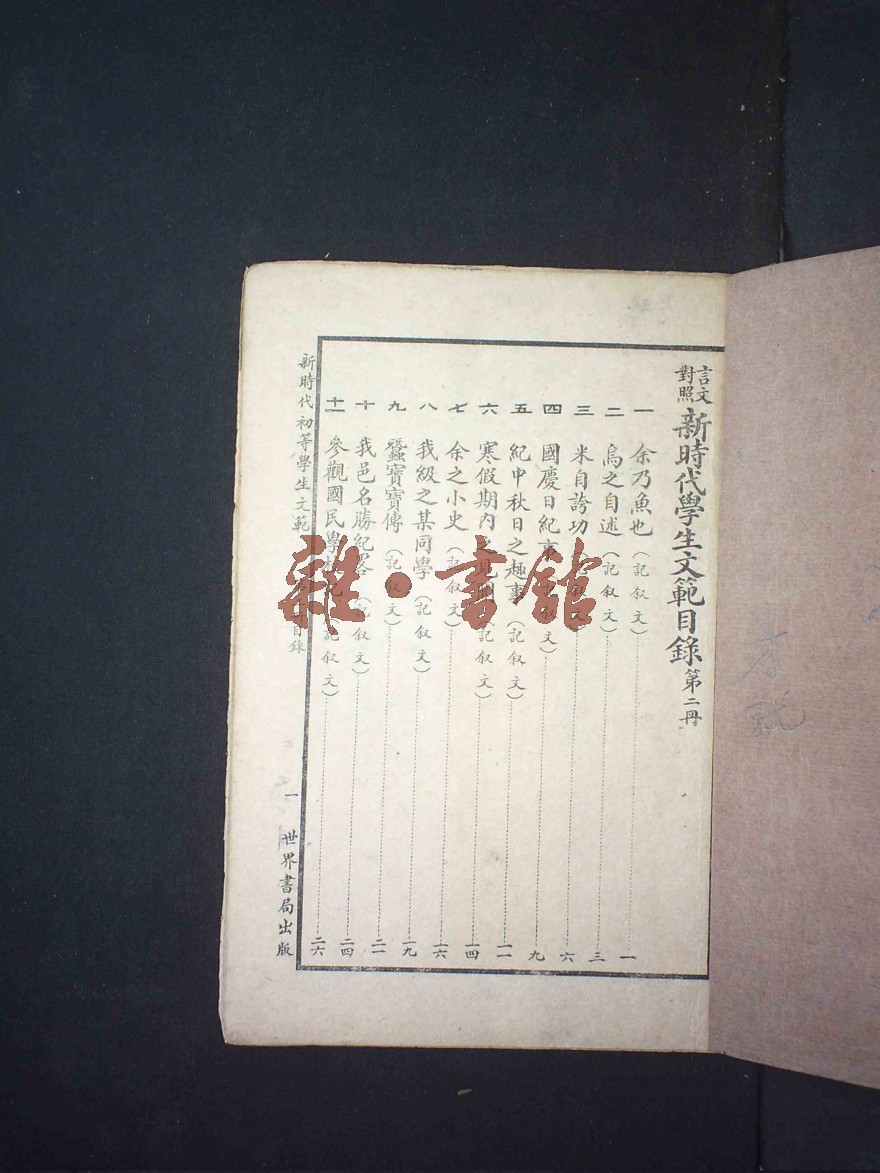 言文對照 新時代學生文範目錄 第二冊
一 余乃魚也(記叙文) 一
二 烏之自述(記叙文) 三
三 米自誇功(記叙文) 六
四 國慶日紀事(記叙文) 九
五 紀中秋日之趣事(記叙文) 一一
六 寒假期內之見聞(記叙文) 一四
七 余之小史(記叙文) 一六
八 我級之某同學(記叙文) 一九
九 蠶寶寶傳(記叙文) 二一
十 我邑名勝紀畧(記叙文) 二四
十一 參觀國民學校記(記叙文) 二六
新時代初等學生文範 第二冊目錄 一 世界書局出版
雜·書館